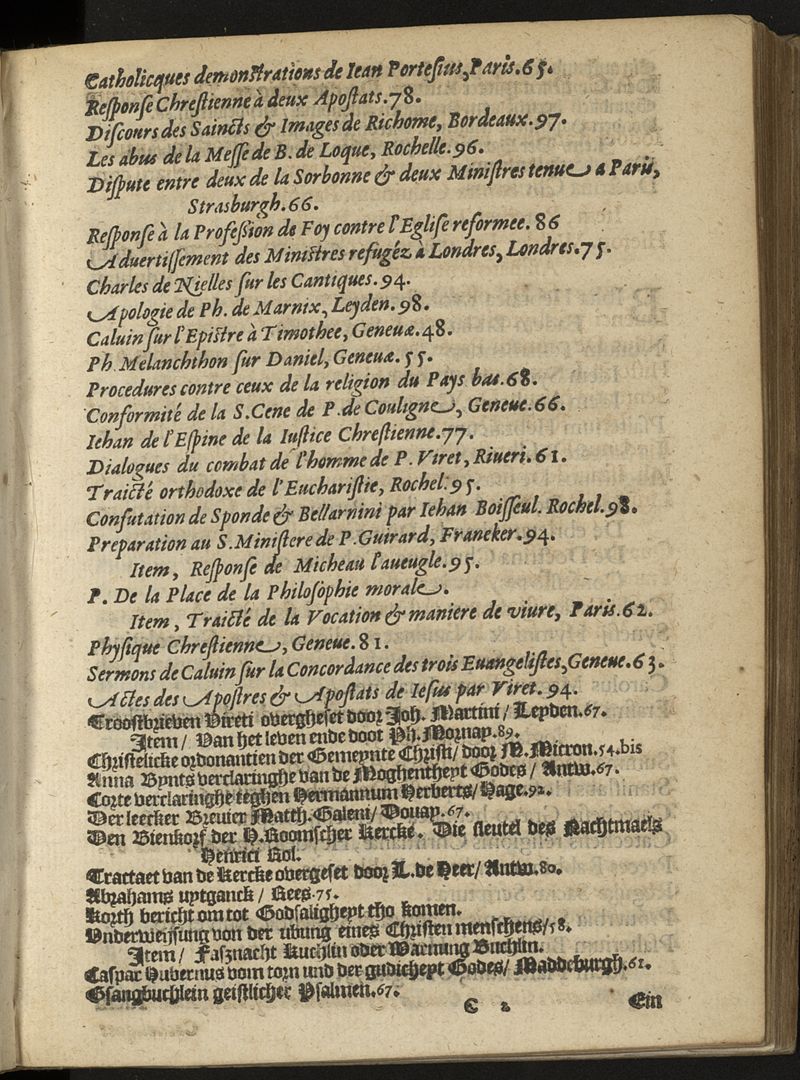 Catholicques demonstrations de Iean Portesius, Paris. 65.
Responſe Chreſtienne à deux Apoſtats. 78.
Diſcours des Saincts & Images de Richome, Bordeaux. 97.
Les abus de la Meſſe de B. de Loque, Rochelle. 96.
Diſpute entre deux de la Sorbonne & deux Miniſtres tenue a Paris,
Strasburgh. 66.
Reſponſe à la Profeſsion de Foy contre l'Egliſe reformee. 86
Aduertiſſement des Miniſtres refugéz à Londres, Londres. 75.
Charles de Nielles ſur les Cantiques. 94.
Apologie de Ph. de Marnix, Leyden. 98.
Caluin ſur l'Epiſtre à Timothee, Geneuæ. 48.
Ph. Melanchthon ſur Daniel, Geneuæ. 55.
Procedures contre ceux de la religion du Pays bas. 68.
Conformité de la S. Cene de P. de Couligne, Geneue. 66.
Iehan de l'Eſpine de la Iuſtice Chreſtienne. 77.
Dialogues du combat de l'homme de P. Viret, Riueri. 61.
Traicté orthodoxe de l'Euchariſtie, Rochel. 95.
Confutation de Sponde & Bellarnini par Iehan Boiſſeul. Rochel. 98.
Preparation au S. Miniſtere de P. Guirard, Franeker. 94.
Item, Reſponſe de Micheau l'aueugle. 95.
P. De la Place de la Philoſophie morale.
Item, Traicté de la Vocation & maniere de viure, Paris. 62.
Phyſique Chreſtienne, Geneue. 81.
Sermons de Caluin ſur la Concordance des trois Euangeliſtes, Geneue. 63.
Actes des Apoſtres & Apoſtats de Ieſus par Viret. 94.
Trooſtbrieven Vireti overgheſet door Joh. Martini / Leyden. 67.
Item / Van het leven ende doot Ph. Mornay. 89.
Chriſtelicke ordonantien der Gemeynte Chriſti / door M. Micron. 54. bis
Anna Bynts verclaringhe van de Moghentheyt Godes / Antw. 67.
Corte verclaringhe teghen Hermannum Herberts / Hage. 92.
Der leecker Brevier Matth. Galeni / Douay. 67.
Den Bienkorf der H. Roomſcher Kercke. Die ſleutel des Nachtmaels
Henrici Rol.
Tractaet van de Kercke overgeſet door L. de Heer / Antw. 80.
Abrahams uytganck / Rees. 75.
Korth bericht om tot Godſaligheyt tho komen.
Underweiſung von der ubung eines Chriſten menſchens / 58.
Item / Faſznacht Kuchlin oder Warnung Buchlin.
Caſpar Hubernus vom torn und der gudicheyt Godes / Maddeburgh. 61.
Gſangbuchlein geiſtlicher Pſalmen. 67.
C 2 Ein